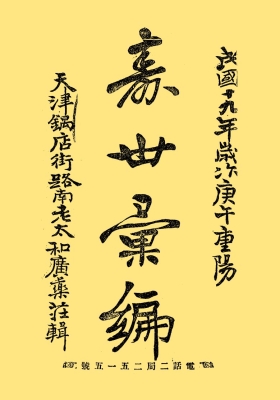 民國十九年歲次庚午重陽
壽世彙編
天津鍋店街路南老太和廣藥莊輯
電話二局二五一五號